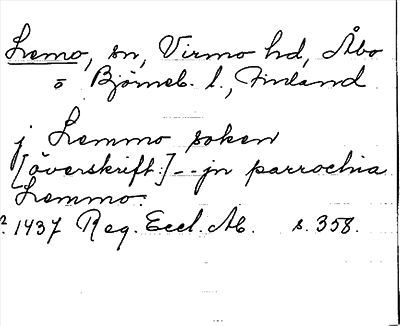 Lemo, sn, Virmo hd, Åbo
o Björneb. l., Finland
j Lemmo soken
[överskrift:] -- jn parrochia
Lemmo.
? 1437 Reg. Eccl. Ab. s. 358.